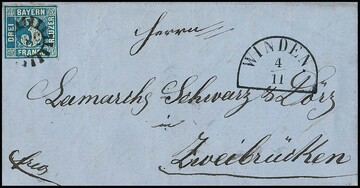 BAYERN
DREI
KREUZER
FRANCO
Herrn
WINDEN
4
11
Schwarz &
in
Zweibrücken
frco